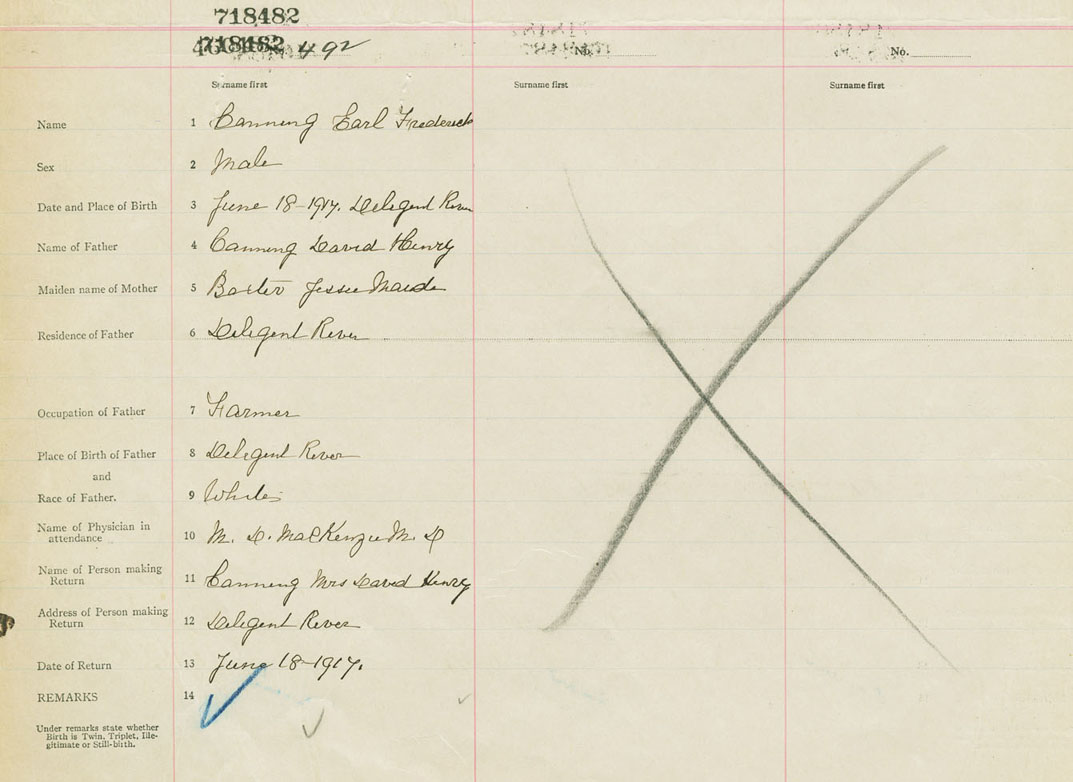 718482
718482 492
No.
No.
Surname first
Surname first
Surname first
Name 1 Canning Earl Frederick
Sex 2 Male
Date and Place of Birth 3 June 18-1917. Deligent River
Name of Father 4 Canning David Henry
Maiden name of Mother 5 Baxter Jessie Maude
Residence of Father 6 Deligent River
Occupation of Father 7 Farmer
Place of Birth of Father 8 Deligent River
and
Race of Father. 9 White
Name of Physician in
attendance 10 M. D. MacKenzie M. D
Name of Person making
Return 11 Canning Mrs David Henry
Address of Person making
Return 12 Deligent River
Date of Return 13 June 18-1917.
REMARKS 14
Under remarks state whether
Birth is Twin, Triplet, Ille-
gitimate or Still-birth.